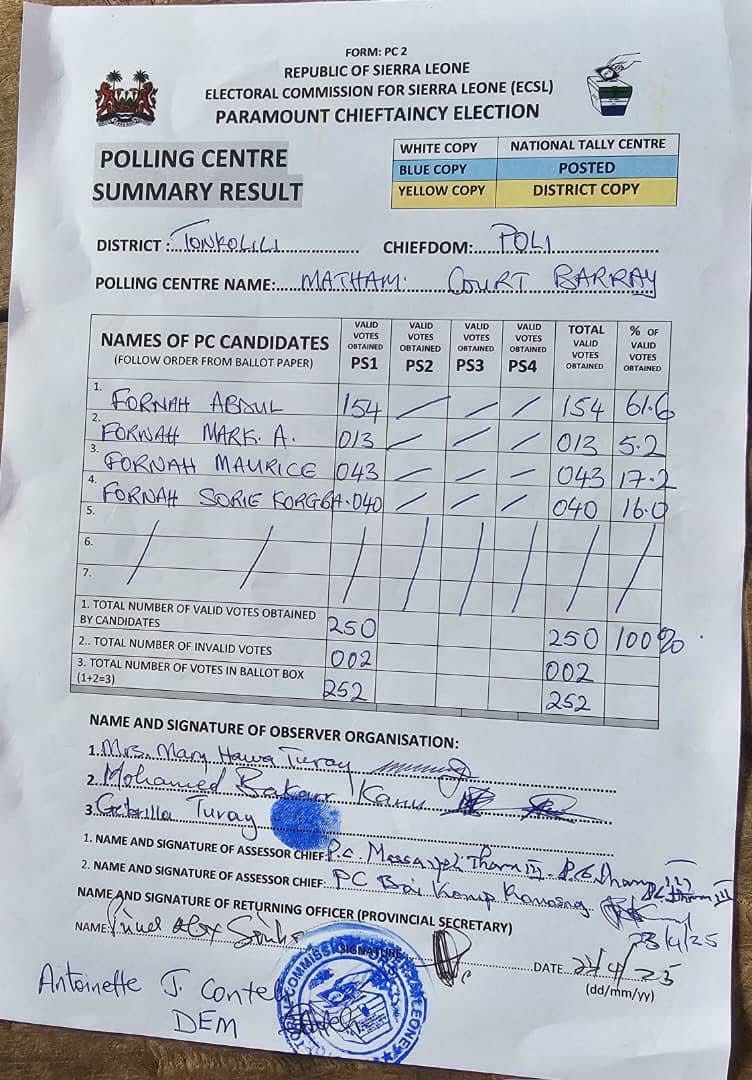 FORM: PC 2
REPUBLIC OF SIERRA LEONE
ELECTORAL COMMISSION FOR SIERRA LEONE (ECSL)
PARAMOUNT CHIEFTAINCY ELECTION
POLLING CENTRE
SUMMARY RESULT
WHITE COPY NATIONAL TALLY CENTRE
BLUE COPY POSTED
YELLOW COPY DISTRICT COPY
DISTRICT: TONKOLILI CHIEFDOM: POLI
POLLING CENTRE NAME: MATHAM: COURT BARRAY
NAMES OF PC CANDIDATES
(FOLLOW ORDER FROM BALLOT PAPER)
VALID VOTES OBTAINED PS1
VALID VOTES OBTAINED PS2
VALID VOTES OBTAINED PS3
VALID VOTES OBTAINED PS4
TOTAL VALID VOTES OBTAINED
% OF VALID VOTES OBTAINED
1. FORNAH ABDUL 154 / / / 154 61.6
2. FORNAH MARK. A. 013 / / / 013 5.2
3. FORNAH MAURICE 043 / / / 043 17.2
4. FORNAH SORIE KORGBA. 040 / / / 040 16.0
5.
6.
7.
1. TOTAL NUMBER OF VALID VOTES OBTAINED
BY CANDIDATES 250 250 100%
2.. TOTAL NUMBER OF INVALID VOTES 002 002
3. TOTAL NUMBER OF VOTES IN BALLOT BOX
(1+2=3) 252 252
NAME AND SIGNATURE OF OBSERVER ORGANISATION:
1. Mrs. Mary Hawa Turay
2. Mohamed Bakarr Kanu
3. Gebrilla Turay
1. NAME AND SIGNATURE OF ASSESSOR CHIEF P.C.
2. NAME AND SIGNATURE OF ASSESSOR CHIEF PC Bai
23/4/25
NAME AND SIGNATURE OF RETURNING OFFICER (PROVINCIAL SECRETARY)
NAME: SIGNATURE DATE /4/25
(dd/mm/yy)
Antoinette J. Conteh
DEM
COMMISSION LEONE